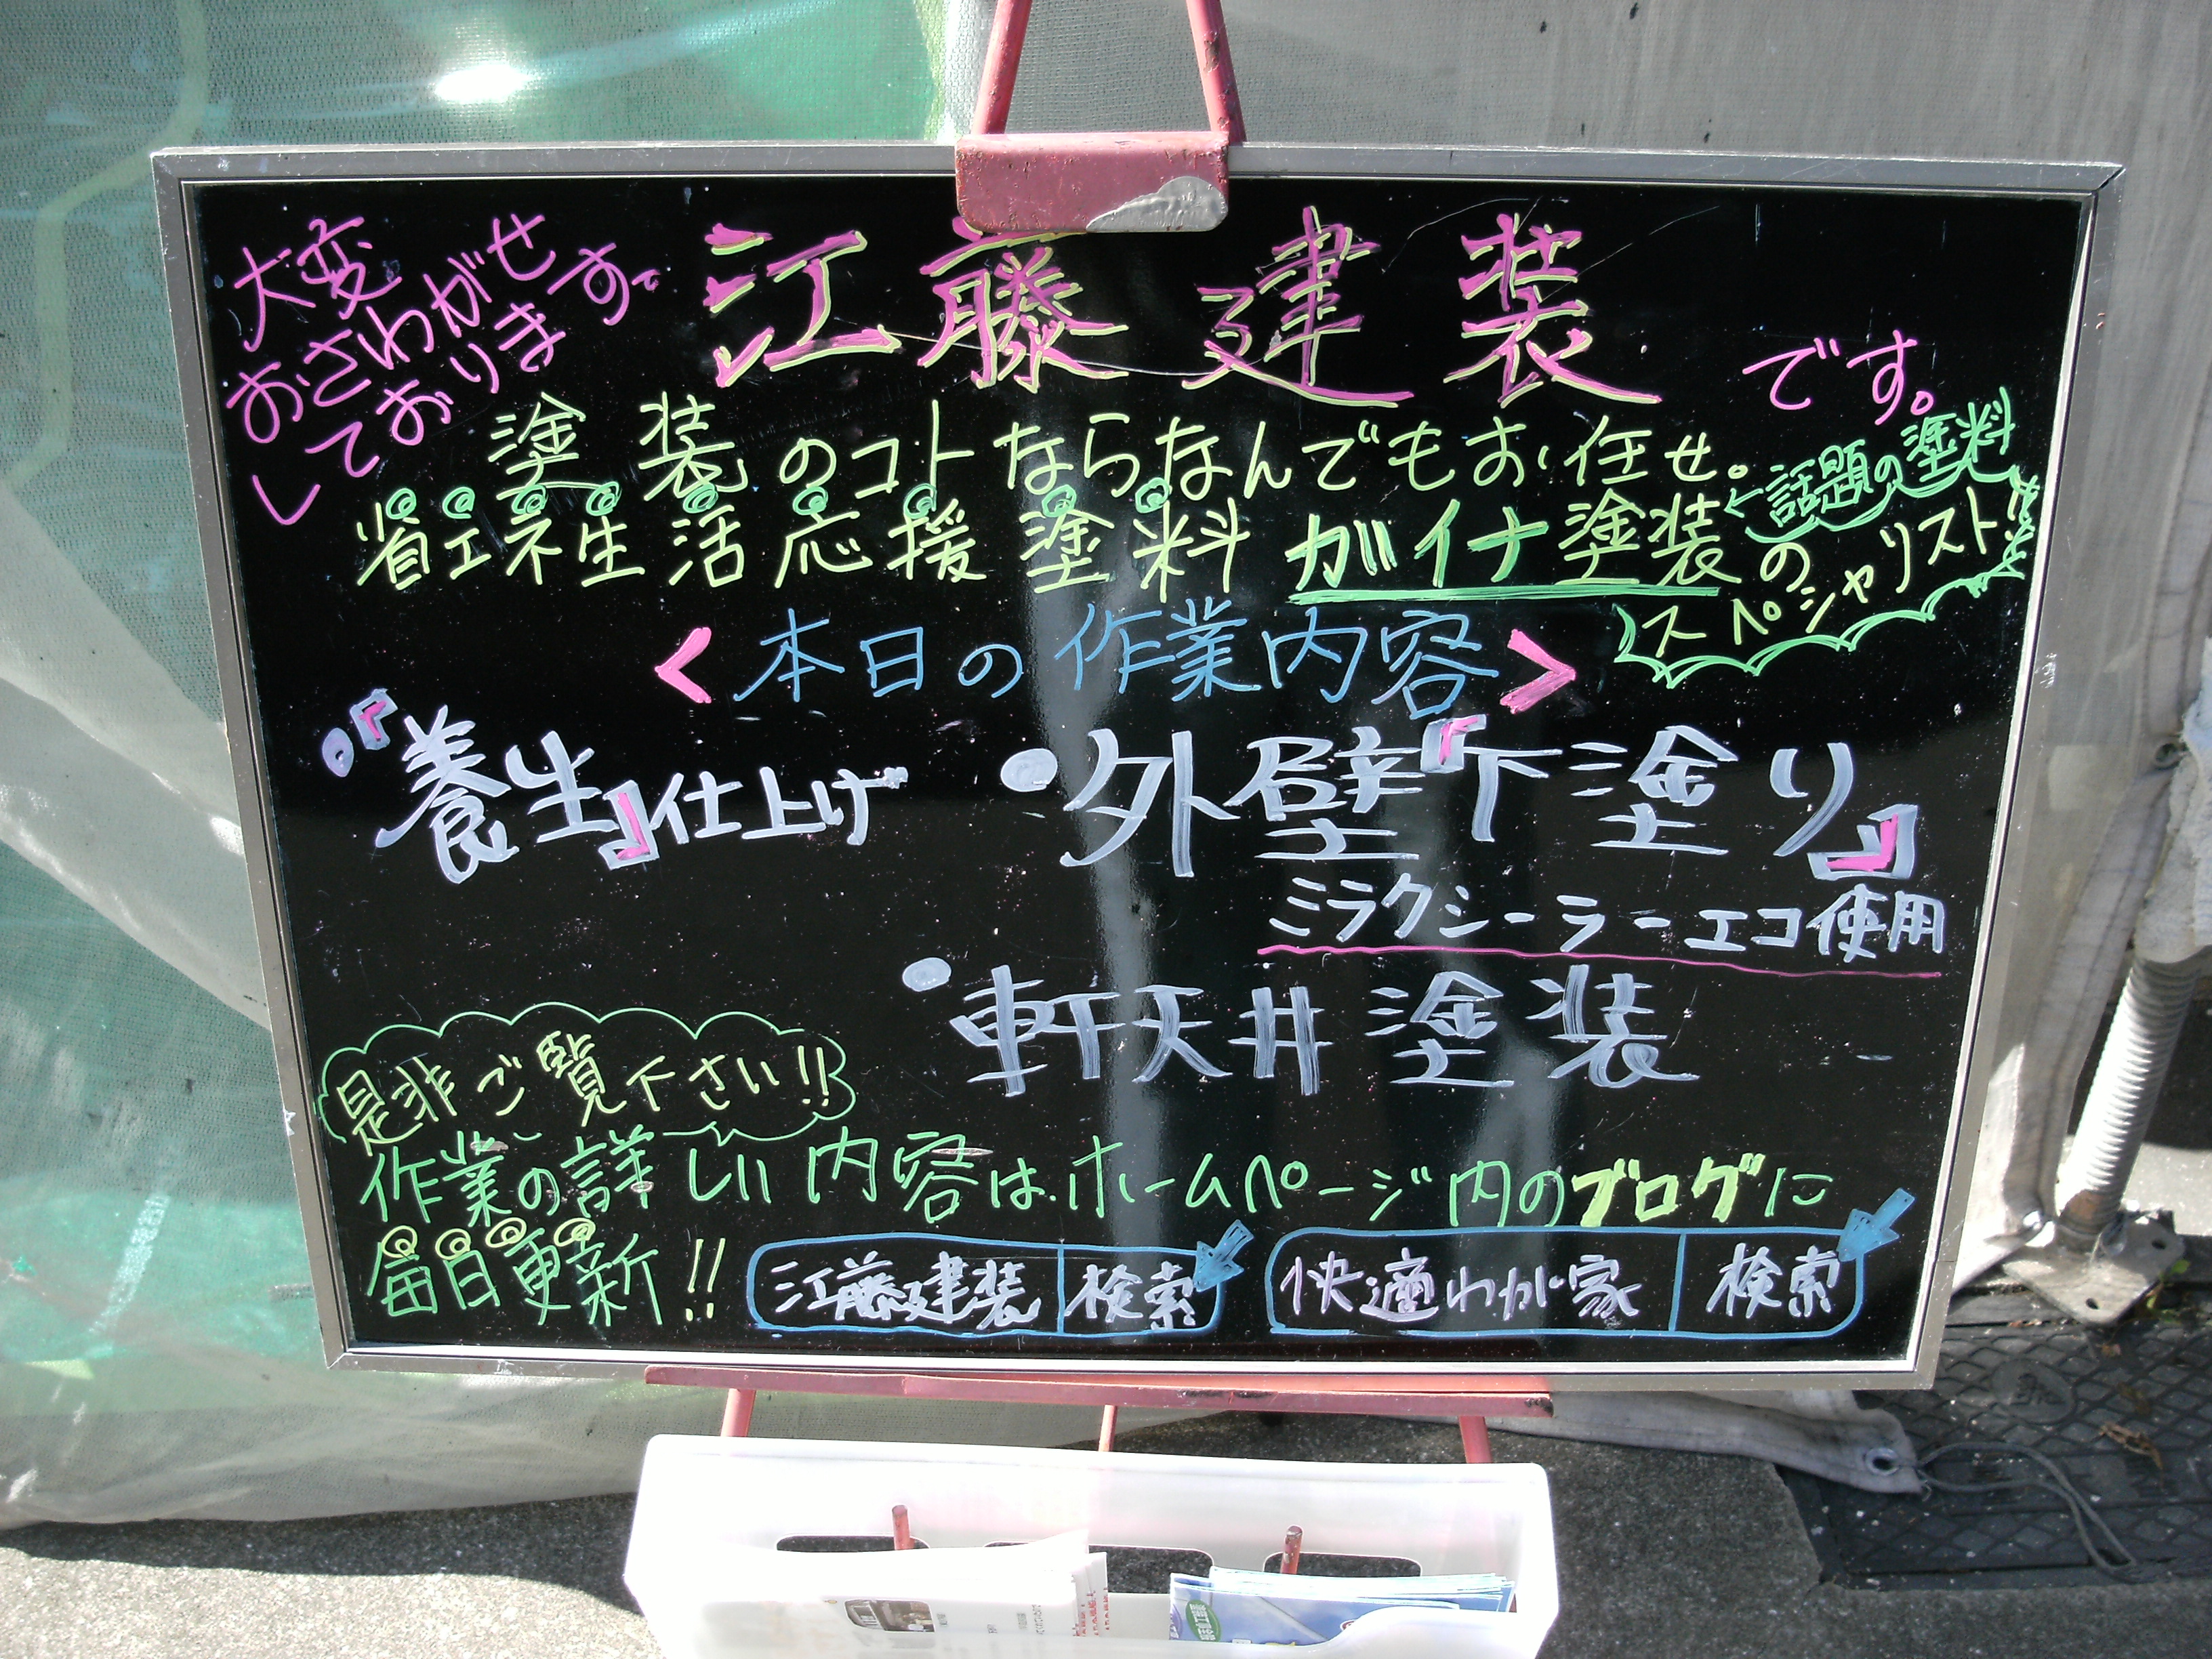 大変
おさわがせ
しております
江藤建装
です。
塗装のコトならなんでもお任せ。
←話題の塗料
省エネ生活応援塗料ガイナ塗装の
スペシャリスト!!
<本日の作業内容>
・『養生』仕上げ
・外壁『下塗り』
ミラクシーラーエコ使用
・軒天井塗装
是非ご覧下さい!!
作業の詳しい内容は、ホームページ内のブログに
毎日更新!!
江藤建装 検索
快適わが家 検索